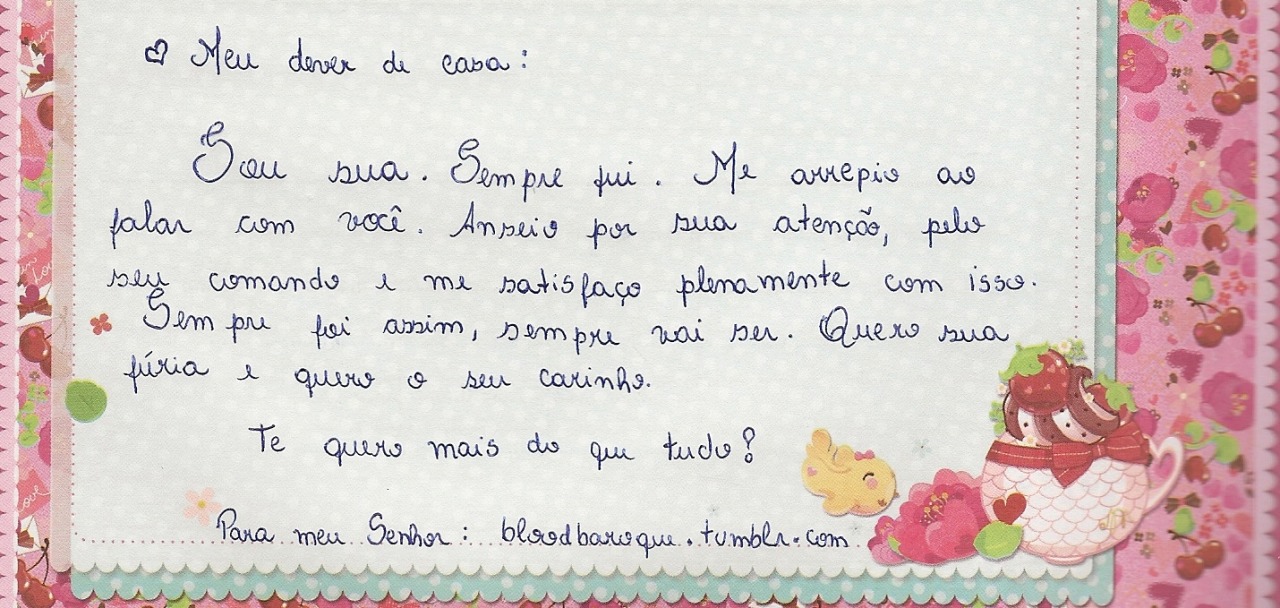 ♡ Meu dever de casa:
Sou sua. Sempre fui. Me arrepio ao
falar com você. Anseio por sua atenção, pelo
seu comando e me satisfaço plenamente com isso.
Sempre foi assim, sempre vai ser. Quero sua
fúria e quero o seu carinho.
Te quero mais do que tudo?
Para meu Senhor: bloodbaroque.tumblr.com